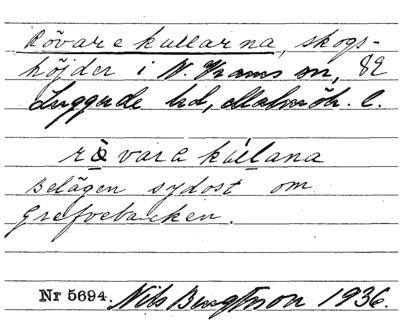 Rövarekullarna, skogs-
höjder i N. Vrams sn, 82
Luggude hd, Malmöh. l.
rövara kúlana
Belägen sydost om
Grefvebacken.
Nr 5694. Nils Bengtsson 1936.